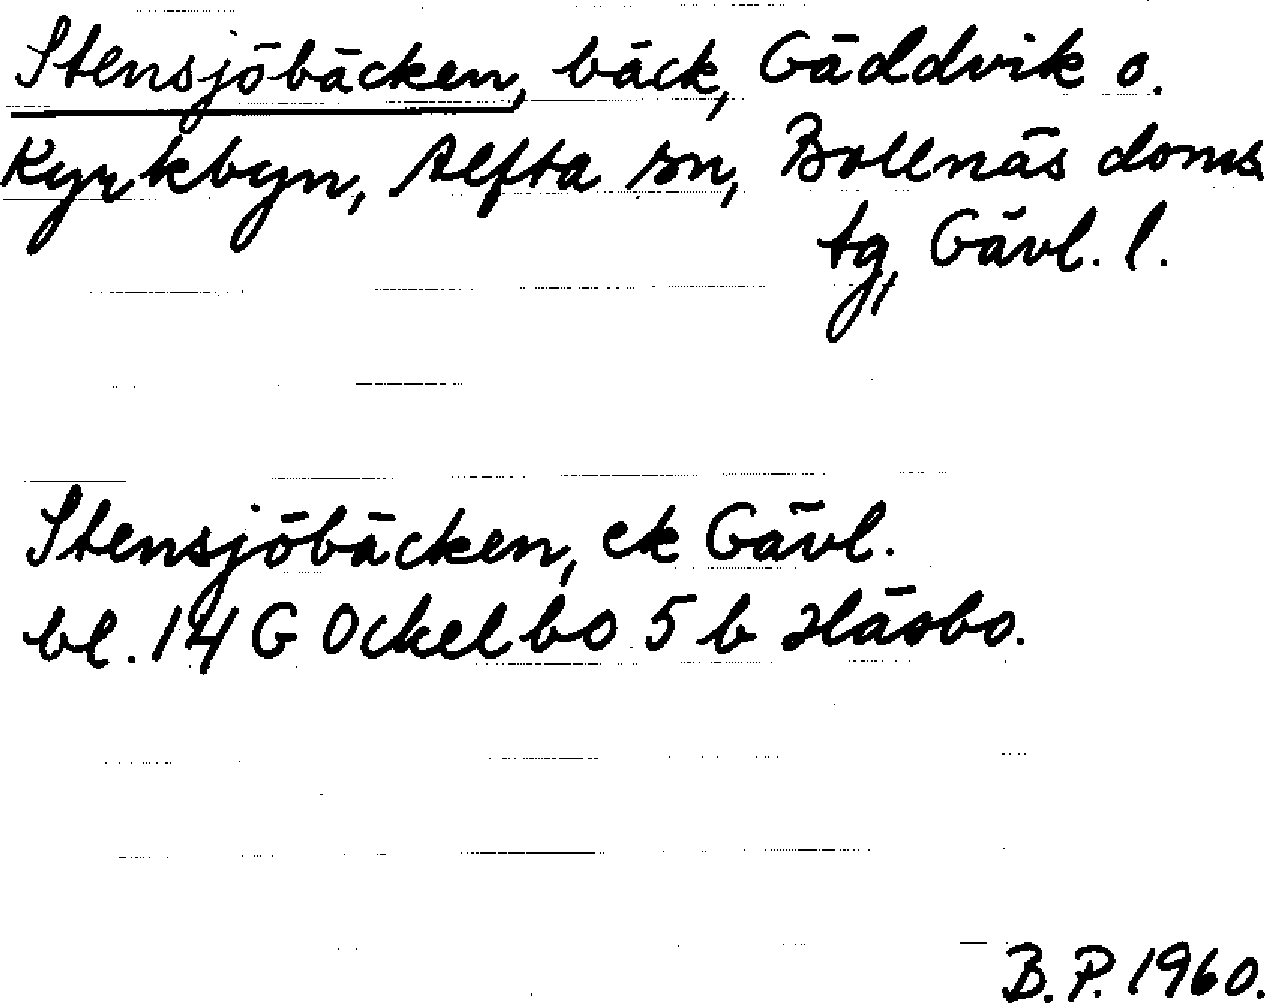 Stensjöbäcken, bäck, Gäddvik o.
Kyrkbyn, Alfta sn, Bollnäs doms
tg, Gävl. l.
Stensjöbäcken, ek Gävl.
bl. 14 G Ockelbo 5 b Häsbo.
B. P. 1960.